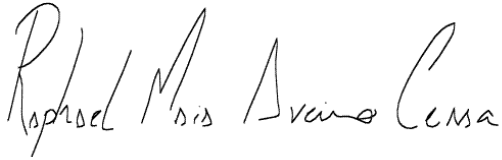 Raphael Maia Aveino Cessa